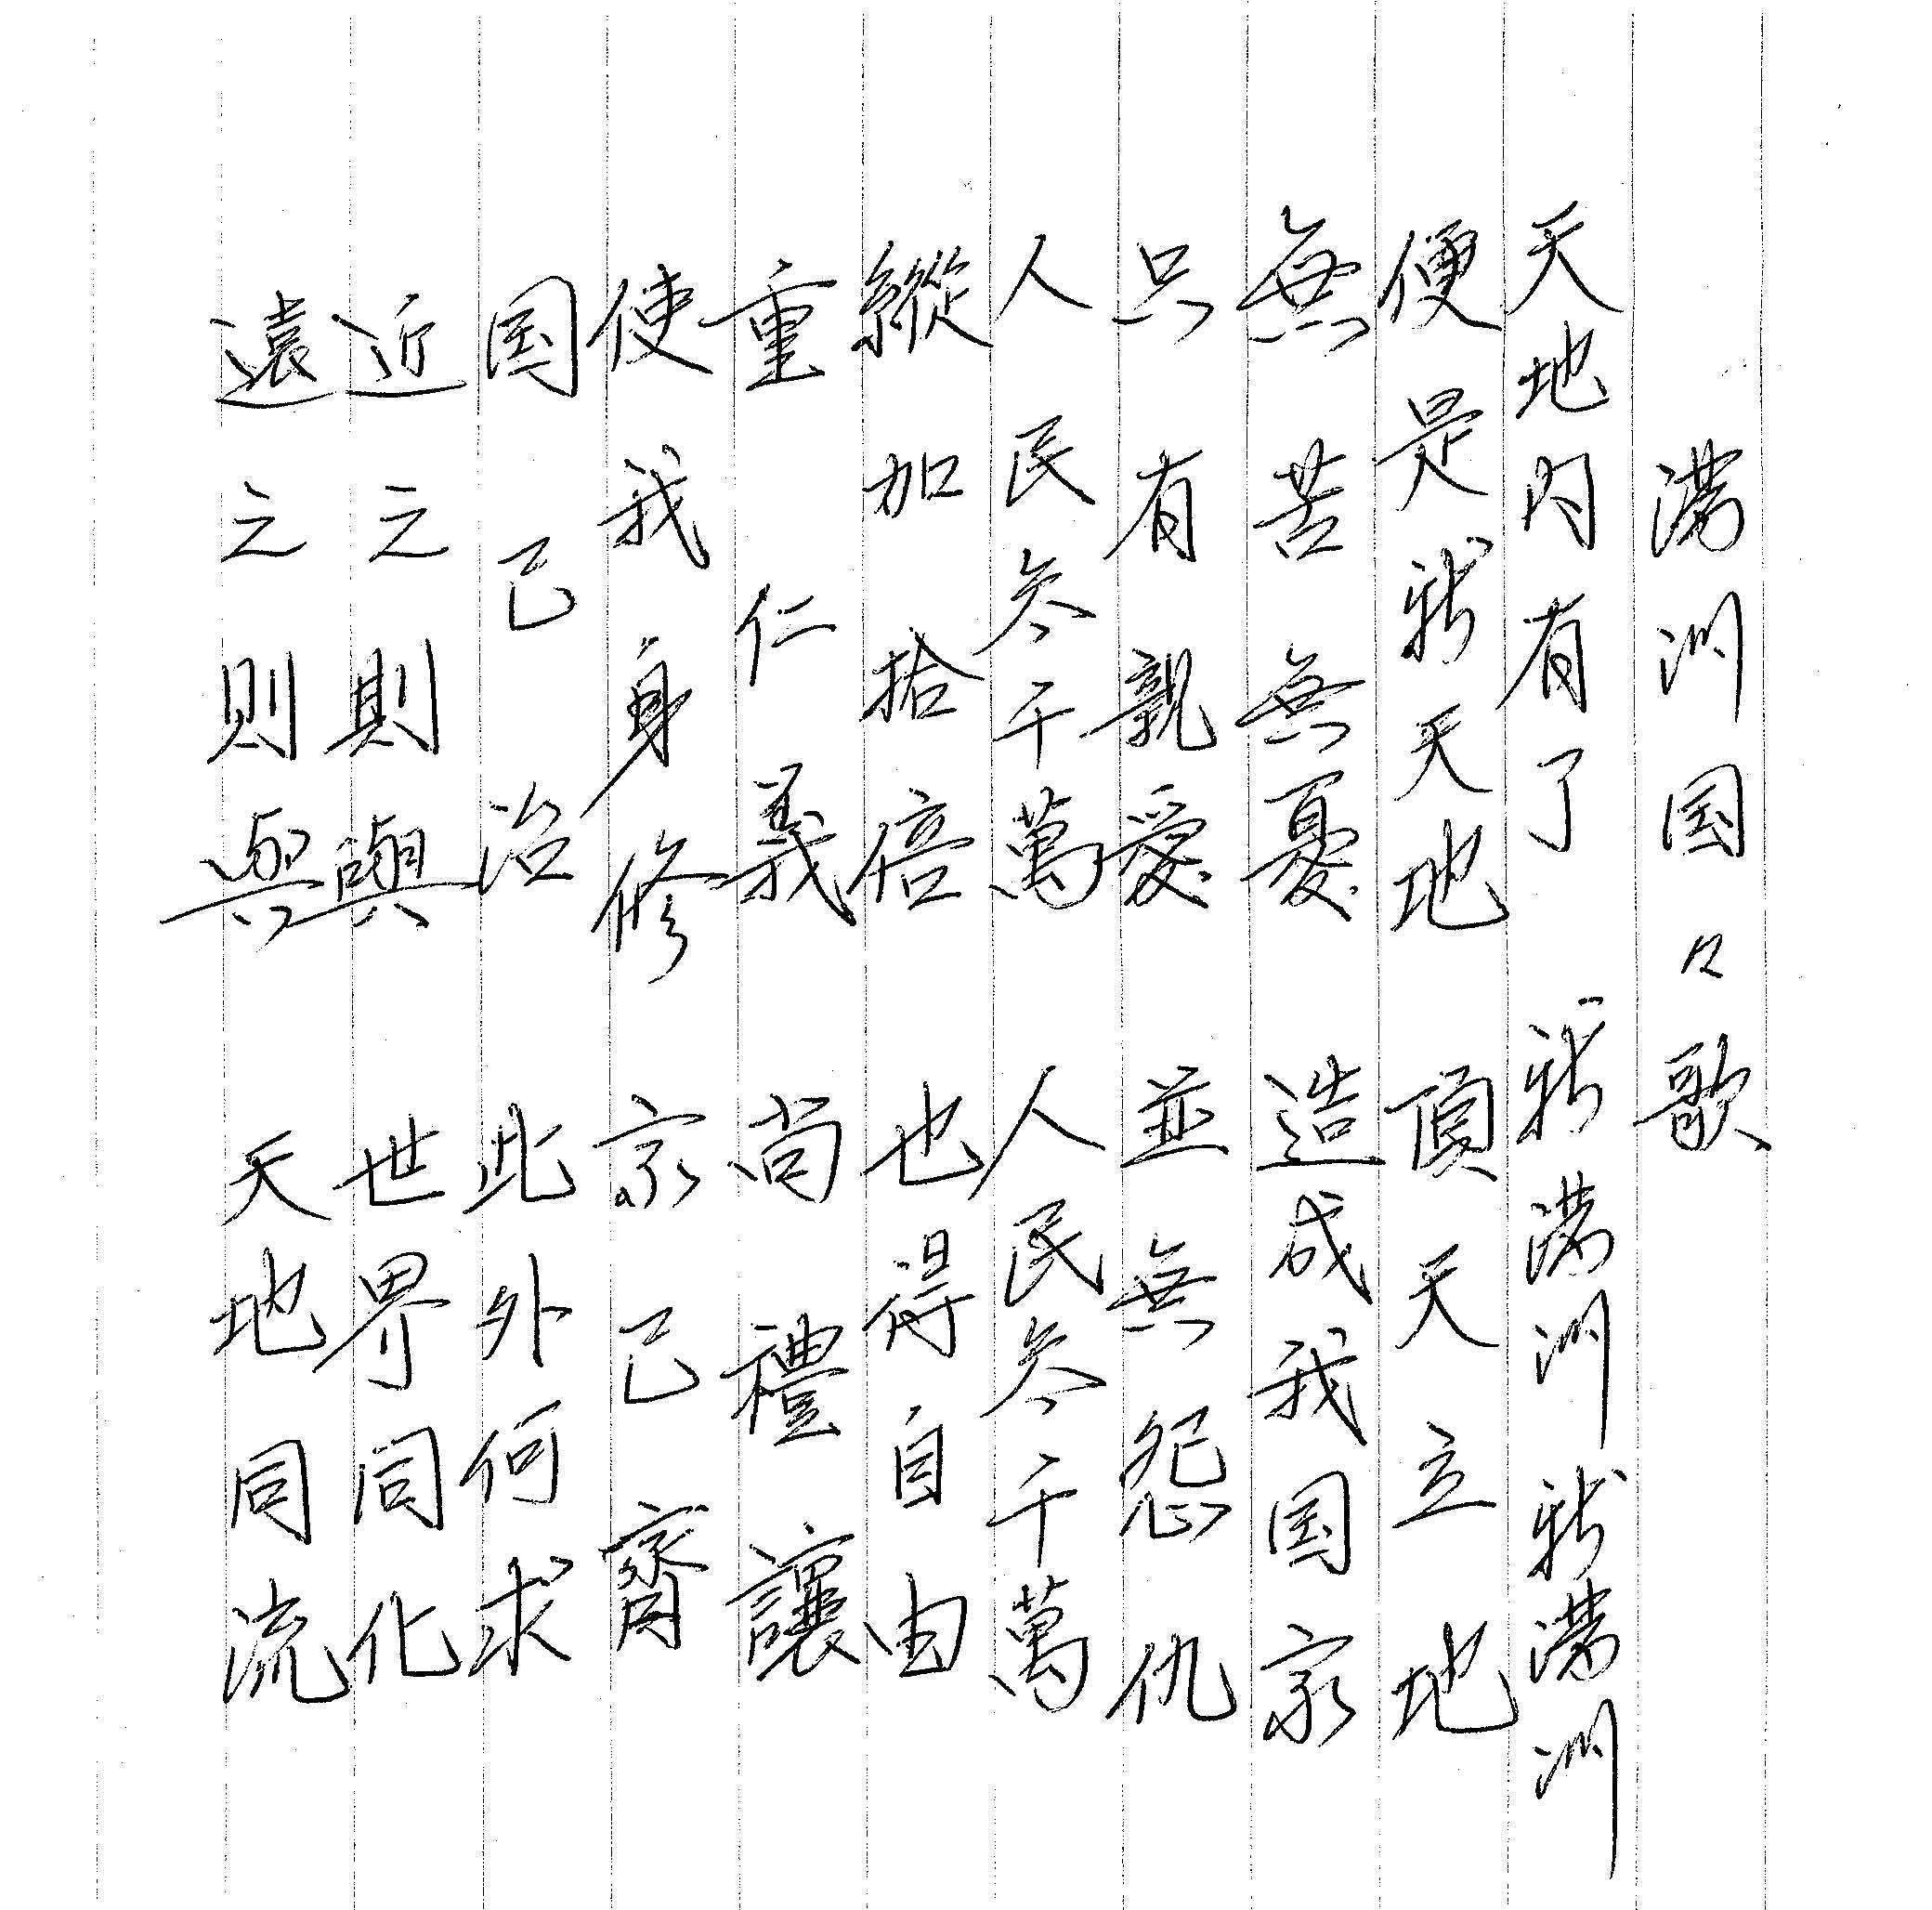 满洲国々歌
天地内有了 新满洲 新满洲
便是新天地 頂天立地
無苦無憂 造成我国家
只有親愛 並無怨仇
人民叁千萬 人民叁千萬
縱加拾倍 也得自由
重仁義 尚禮讓
使我身修 家已齊
国已治 此外何求
近之則與 世界同化
遠之則與 天地同流